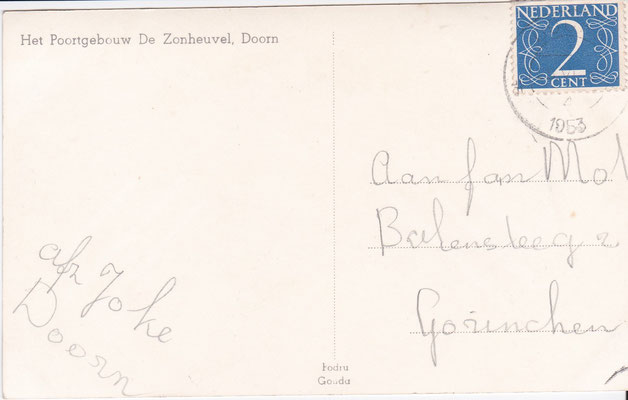 Het Poortgebouw De Zonheuvel, Doorn
NEDERLAND
2
CENT
1953
Aan Jan Mol
Gorinchen
afz Joke
Doorn
Fodru
Gouda